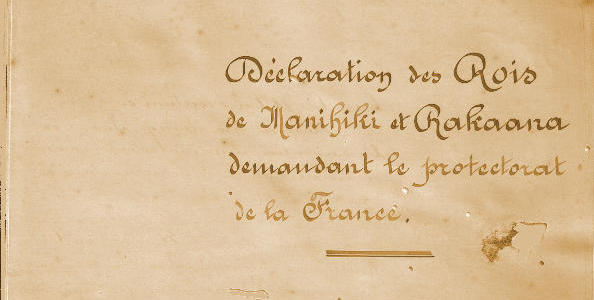 Déclaration des Rois
de Manihiki et Rakaana
demandant le protectorat
de la France.